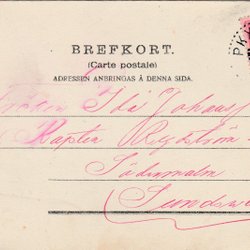 PK
BREFKORT.
(Carte postale)
ADRESSEN ANBRINGAS Å DENNA SIDA.
Fröken Ida Johans
Kapten Rydström
Södermalm
Sundsv